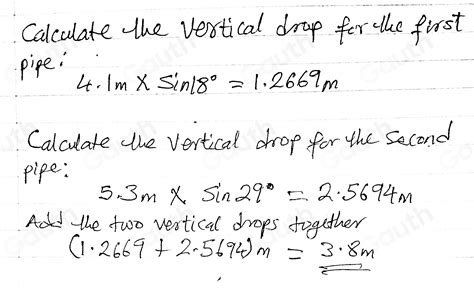 Calculate the vertical drop for the first
pipe:
4.1m X Sin18° = 1.2669m
Calculate the vertical drop for the second
pipe:
5.3m X Sin 29° = 2.5694m
Add the two vertical drops together
(1.2669 + 2.5694)m = 3.8m